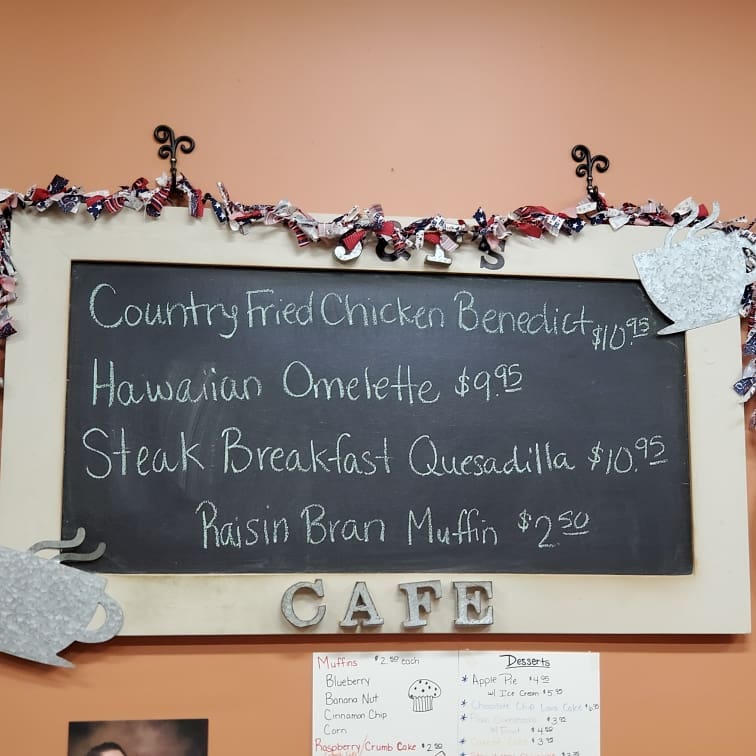 Country Fried Chicken Benedict $10.95
Hawaiian Omelette $9.95
Steak Breakfast Quesadilla $10.95
Raisin Bran Muffin $2.50
CAFE
Muffins $2.50 each
Blueberry
Banana Nut
Cinnamon Chip
Corn
Raspberry/Crumb Cake $2.50
Desserts
* Apple Pie $4.95
w/ Ice Cream $5.95
* Chocolate Chip Lava Cake